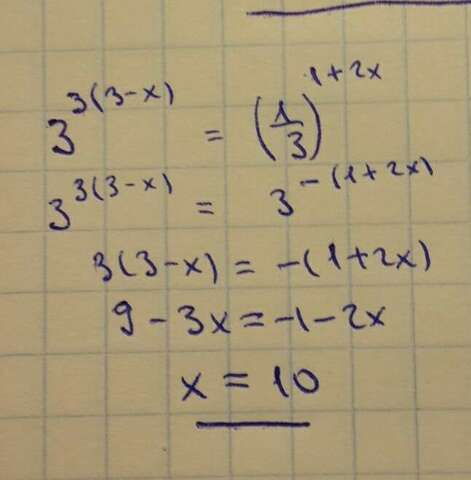 3^{3(3-x)} = (\frac{1}{3})^{1+2x}
3^{3(3-x)} = 3^{-(1+2x)}
3(3-x) = -(1+2x)
9-3x=-1-2x
x = 10